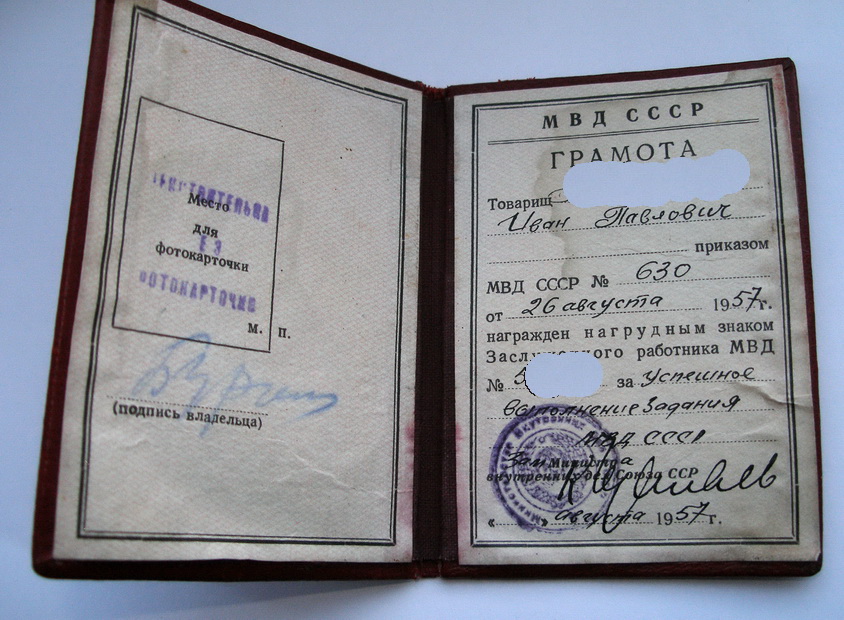 Место
для
фотокарточки
ФОТОКАРТОЧКИ
М. П.
(подпись владельца)
МВД СССР
ГРАМОТА
Товарищ
Иван Павлович
приказом
МВД СССР № 630
от 26 августа 1957г.
награжден нагрудным знаком
работника МВД
№ 5 за успешное
выполнение задания
МВД СССР
Зам Министра
внутренних дел Союза ССР
« августа 1957 г.